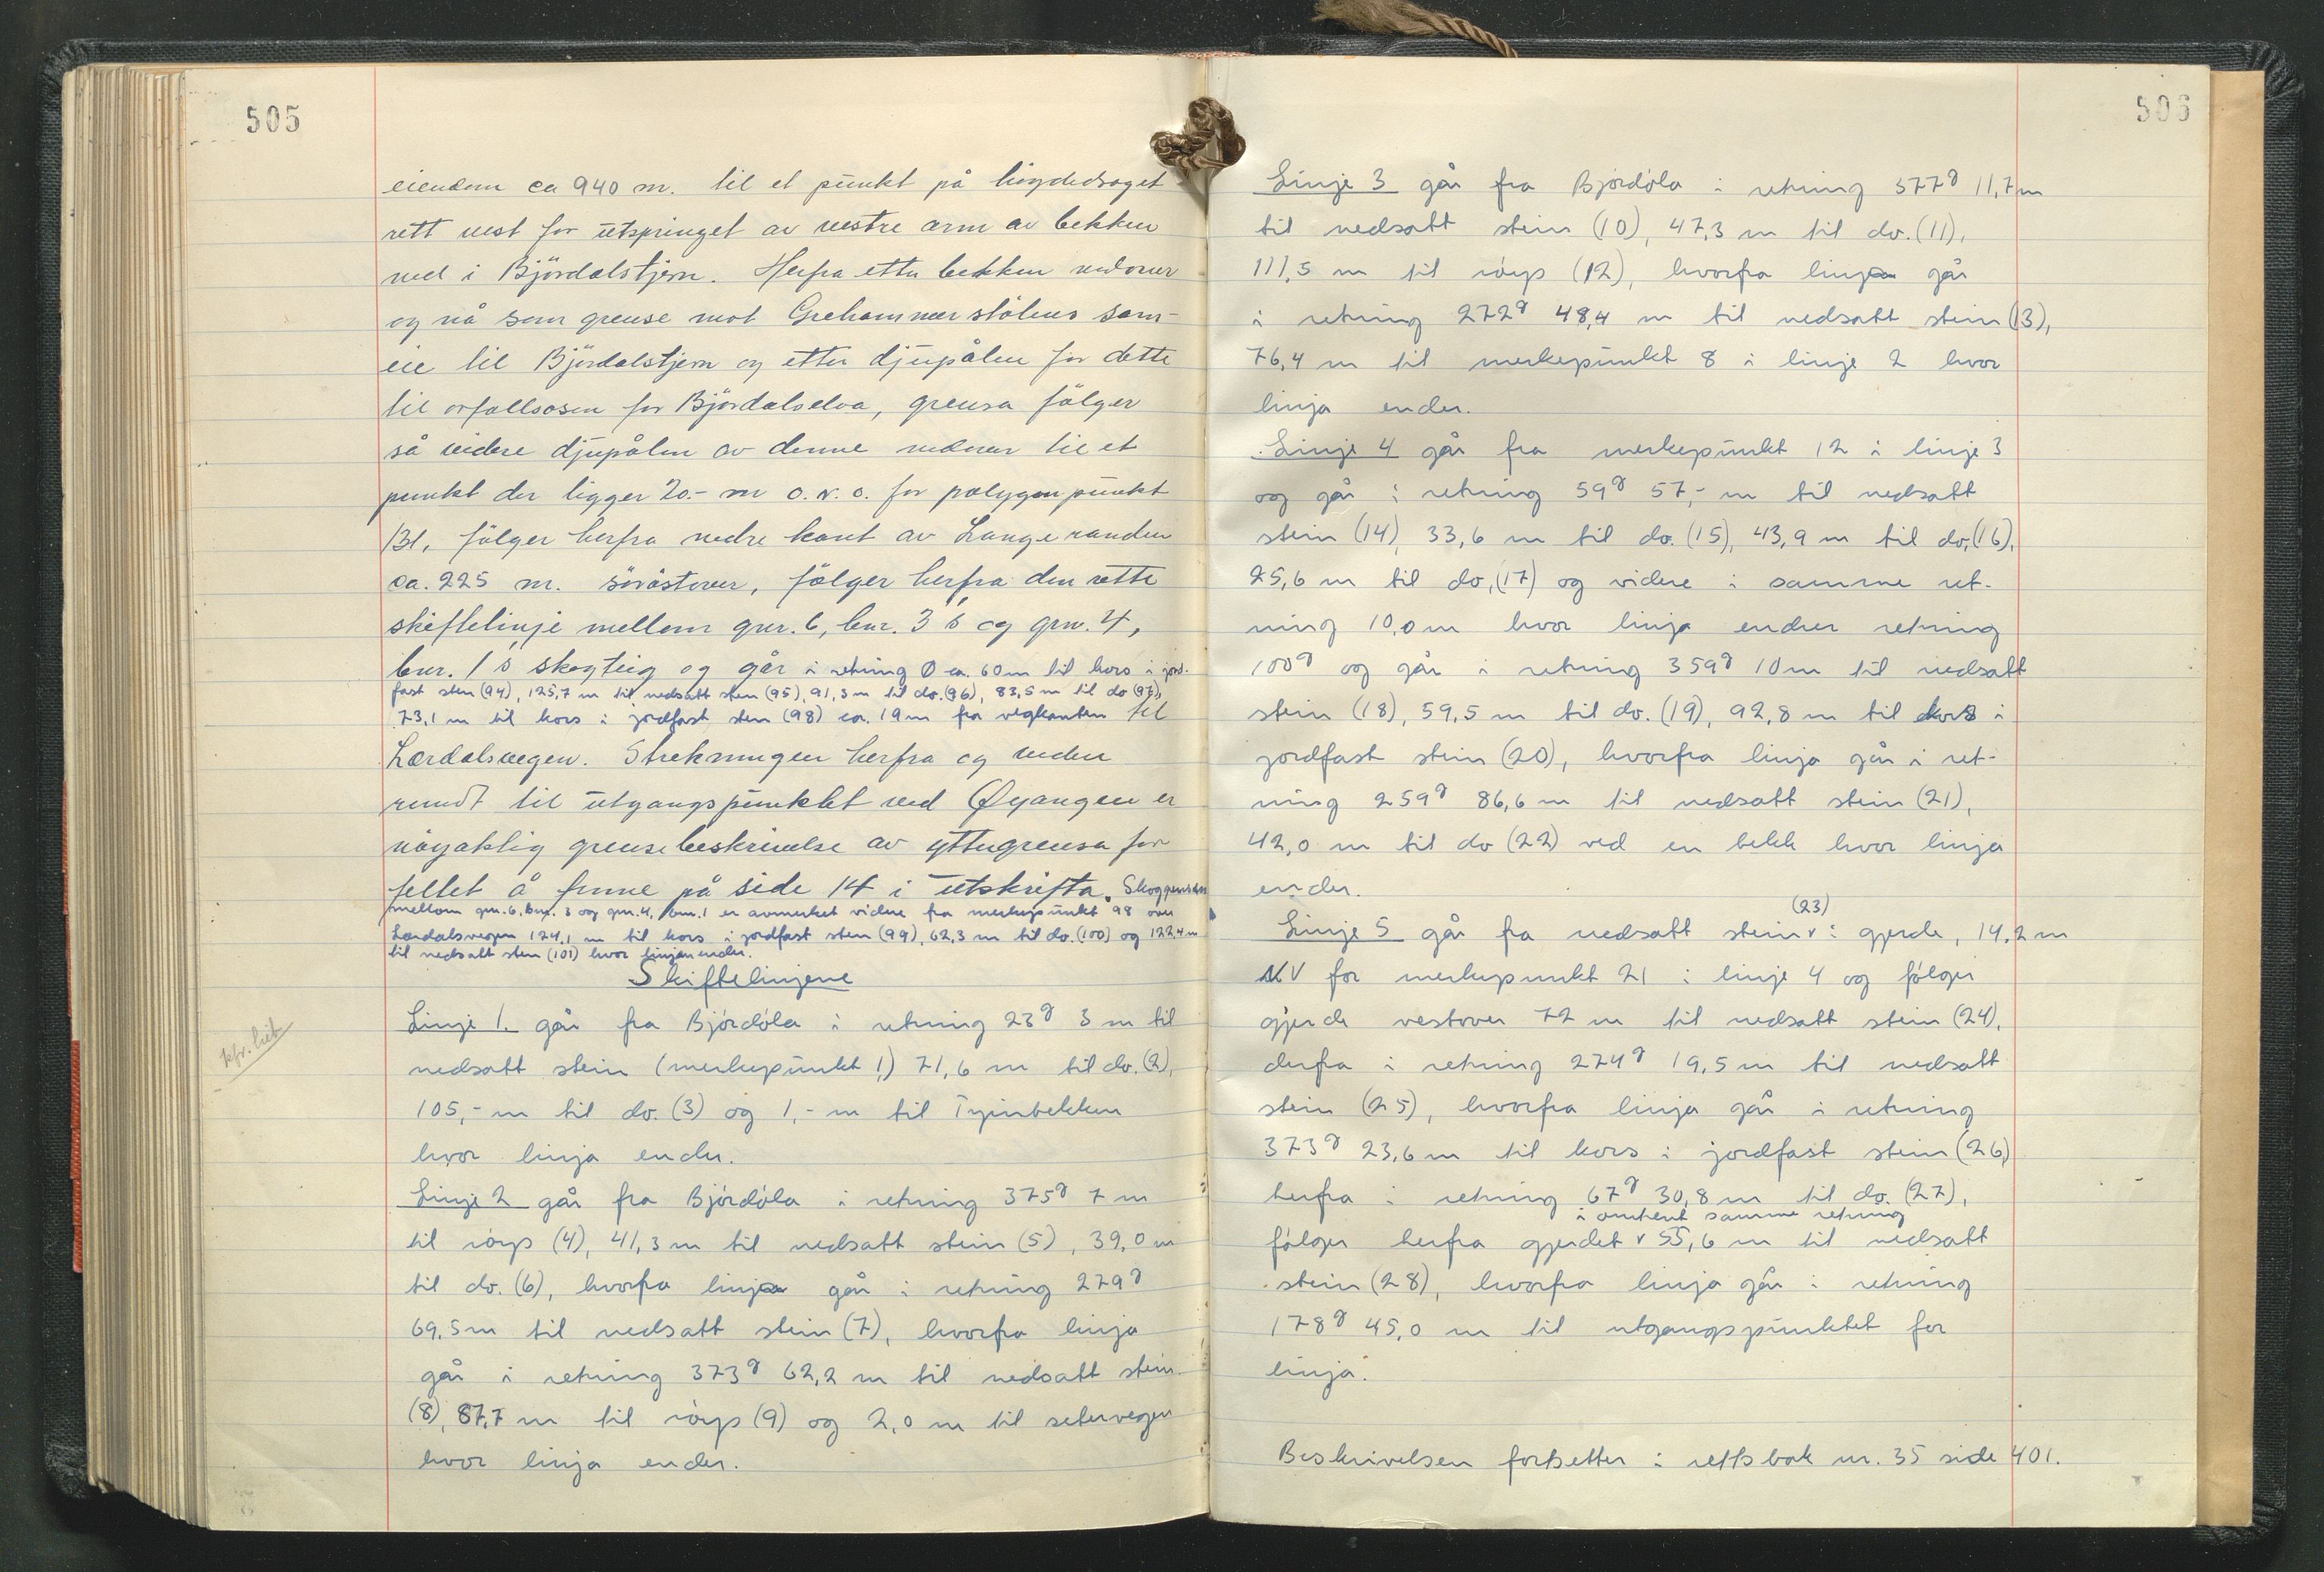 505
eiendom ca 940 m. til et punkt på høydedraget
rett vest for utspringet av vestre arm av bekken
ned i Björdalstjern. Herfra etter bekken nedover
og nå som grense mot Grehammerstölens sam-
eie til Björdalstjern og etter djupålen for dette
til avfallsosen for Björdalselva, grensa fölger
så videre djupålen av denne nedover til et
punkt der ligger 20.- m o.n.o. for polygonpunkt
131, fölger herfra nedre kant av Langeranden
ca. 225 m. söröstover, fölger herfra den rette
skiftelinje mellom gnr. 6, bnr. 3's og gnr. 4,
bnr. 1's skogteig og går i retning Ø ca. 60 m til kors i jord-
fast sten (94), 125,7 m til nedsatt sten (95), 91,3 m til do. (96), 83,5 m til do (97),
73,1 m til kors i jordfast sten (98) ca. 19 m fra vegkanten til
Lærdalsvegen. Strekningen herfra og videre
rundt til utgangspunktet ved Øyangen er
nöyaktig grensebeskrivelse av yttergrensa for
feltet å finne på side 14 i utskrifta. Skoggrensen
mellom gnr. 6, bnr. 3 og gnr. 4, bnr. 1 er avmerket videre fra merkepunkt 98 over
Lærdalsvegen 124,1 m til kors i jordfast sten (99), 62,3 m til do. (100) og 122,4 m
til nedsatt sten (101) hvor linjen ender.
Skiftelinjene
kfr. litt
Linje 1. går fra Bjórdóla i retning 23g 3 m til
nedsatt stein (merkepunkt 1,) 71,6 m til do. (2),
105,- m til do. (3) og 1,- m til Tyinbekken
hvor linja ender.
Linje 2 går fra Bjórdóla i retning 375g 7 m
til röys (4), 41,3 m til nedsatt stein (5), 39,0 m
til do. (6), hvorfra linja går i retning 279g
69,5 m til nedsatt stein (7), hvorfra linja
går i retning 373g 62,2 m til nedsatt stein
(8), 87,7 m til röys (9) og 2,0 m til setervegen
hvor linja ender.
506
Linje 3 går fra Bjórdóla i retning 377g 11,7 m
til nedsatt stein (10), 47,3 m til do. (11),
111,5 m til röys (12), hvorfra linja går
i retning 272g 48,4 m til nedsatt stein (13),
76,4 m til merkepunkt 8 i linje 2 hvor
linja ender.
Linje 4 går fra merkepunkt 12 i linje 3
og går i retning 59g 57,- m til nedsatt
stein (14), 33,6 m til do. (15), 43,9 m til do, (16),
25,6 m til do, (17) og videre i samme ret-
ning 10,0 m hvor linja endrer retning
100g og går i retning 359g 10 m til nedsatt
stein (18), 59,5 m til do. (19), 92,8 m til kors i
jordfast stein (20), hvorfra linja går i ret-
ning 259g 86,6 m til nedsatt stein (21),
42,0 m til do (22) ved en bekk hvor linja
ender.
(23)
Linje 5 går fra nedsatt stein v i gjerde, 14,2 m
NV for merkepunkt 21 i linje 4 og fölger
gjerde vestover 72 m til nedsatt stein (24),
derfra i retning 274g 19,5 m til nedsatt
stein (25), hvorfra linja går i retning
373g 23,6 m til kors i jordfast stein (26)
herfra i retning 67g 30,8 m til do. (27),
i omtrent samme retning
fölger herfra gjerdet v 55,6 m til nedsatt
stein (28), hvorfra linja går i retning
178g 45,0 m til utgangspunktet for
linja.
Beskrivelsen fortsetter i rettsbok nr. 35 side 401.